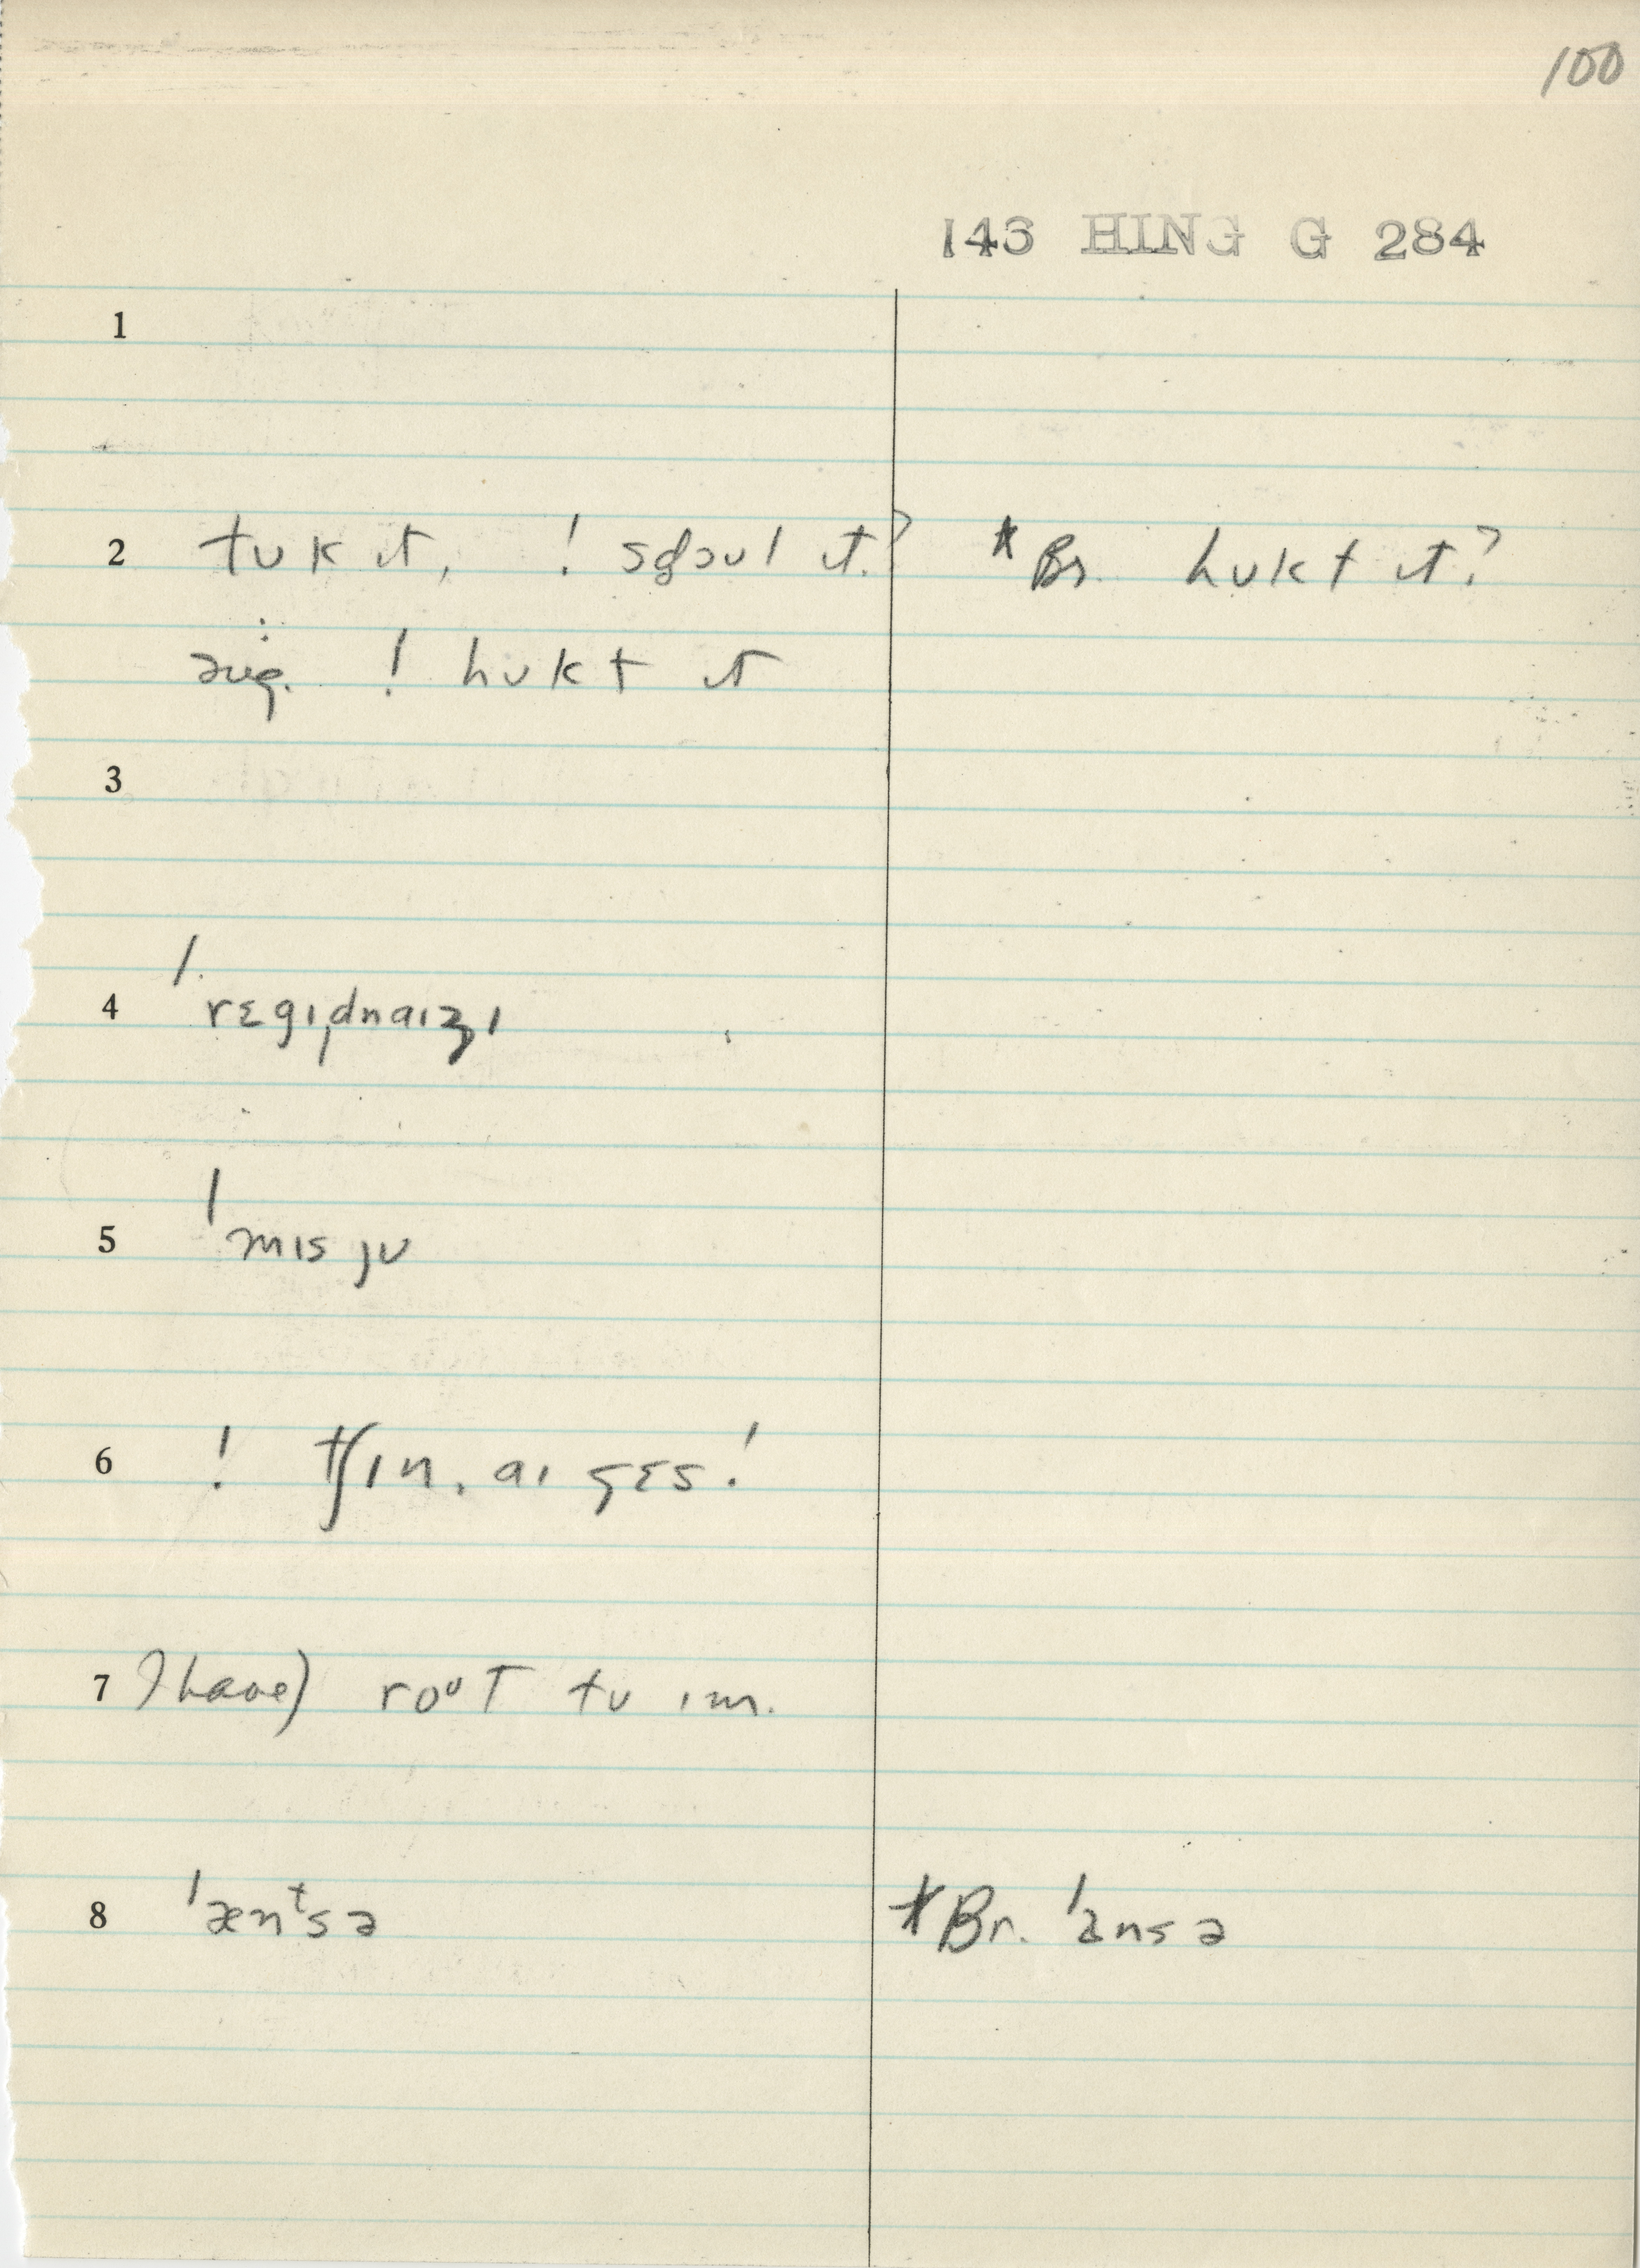 100
143 HING G 284
1
2 tʊk ɪt, ! sʤoʊl ɪt.? *Br. hʊkt ɪt?
! hʊkt ɪt
3
4 ˈrɛgɪ̦dnaɪʒɪ
5 ˈmɪs jʊ
6 ! tʃɪn, aɪ gɛs!
7 ? have) roᵘt tʊ ɪm.
8 ˈænᵗsə *Br. ˈansə